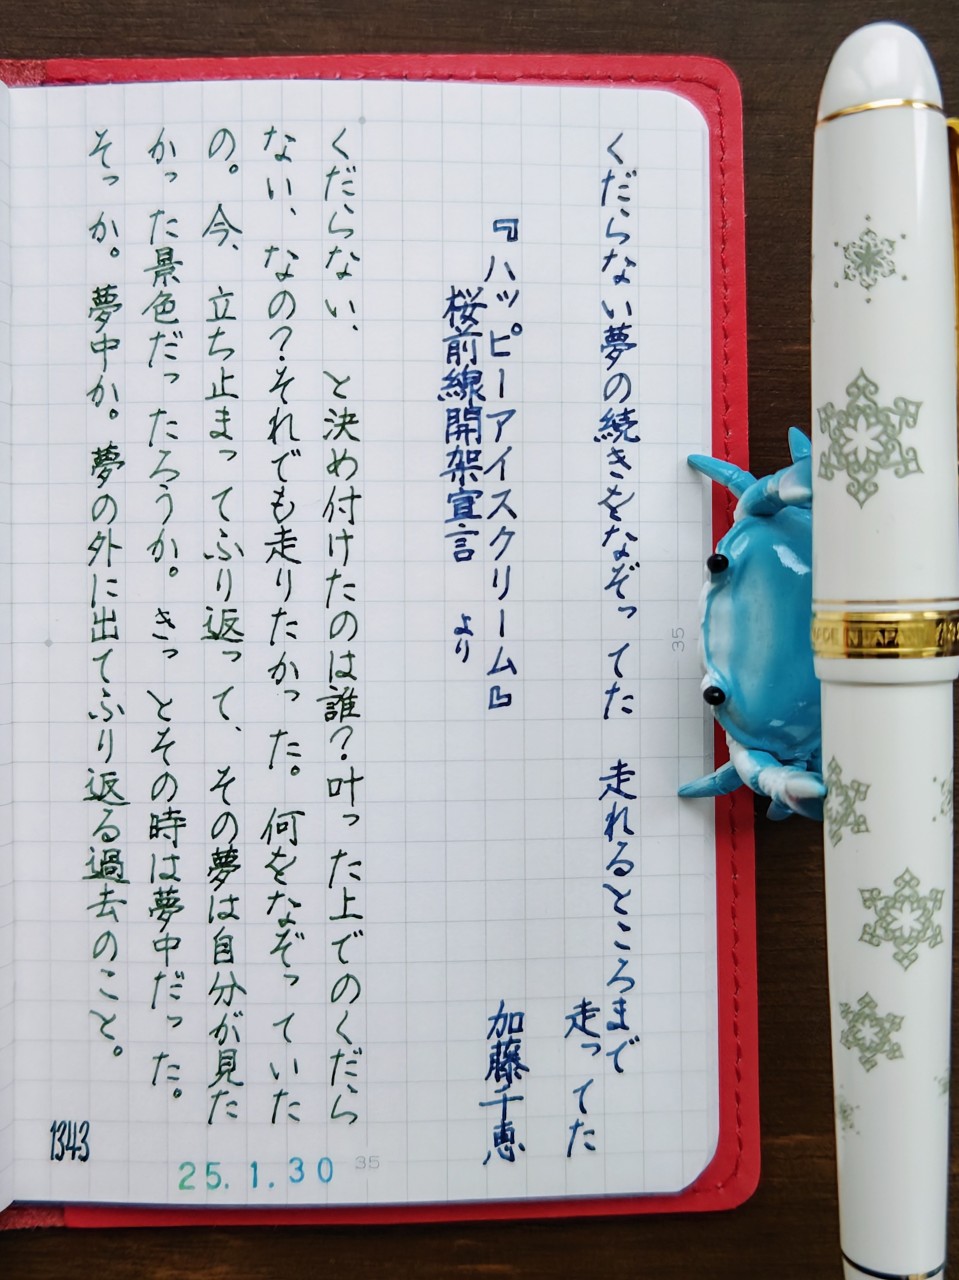 くだらない夢の続きをなぞってた　走れるところまで
走ってた
『ハッピーアイスクリーム』　加藤千恵
桜前線開架宣言　より
くだらない、と決め付けたのは誰？叶った上でのくだら
ない、なの？それでも走りたかった。何をなぞっていた
の。今、立ち止まってふり返って、その夢は自分が見た
かった景色だったろうか。きっとその時は夢中だった。
そっか。夢中か。夢の外に出てふり返る過去のこと。
1343
25.1.30
35
35